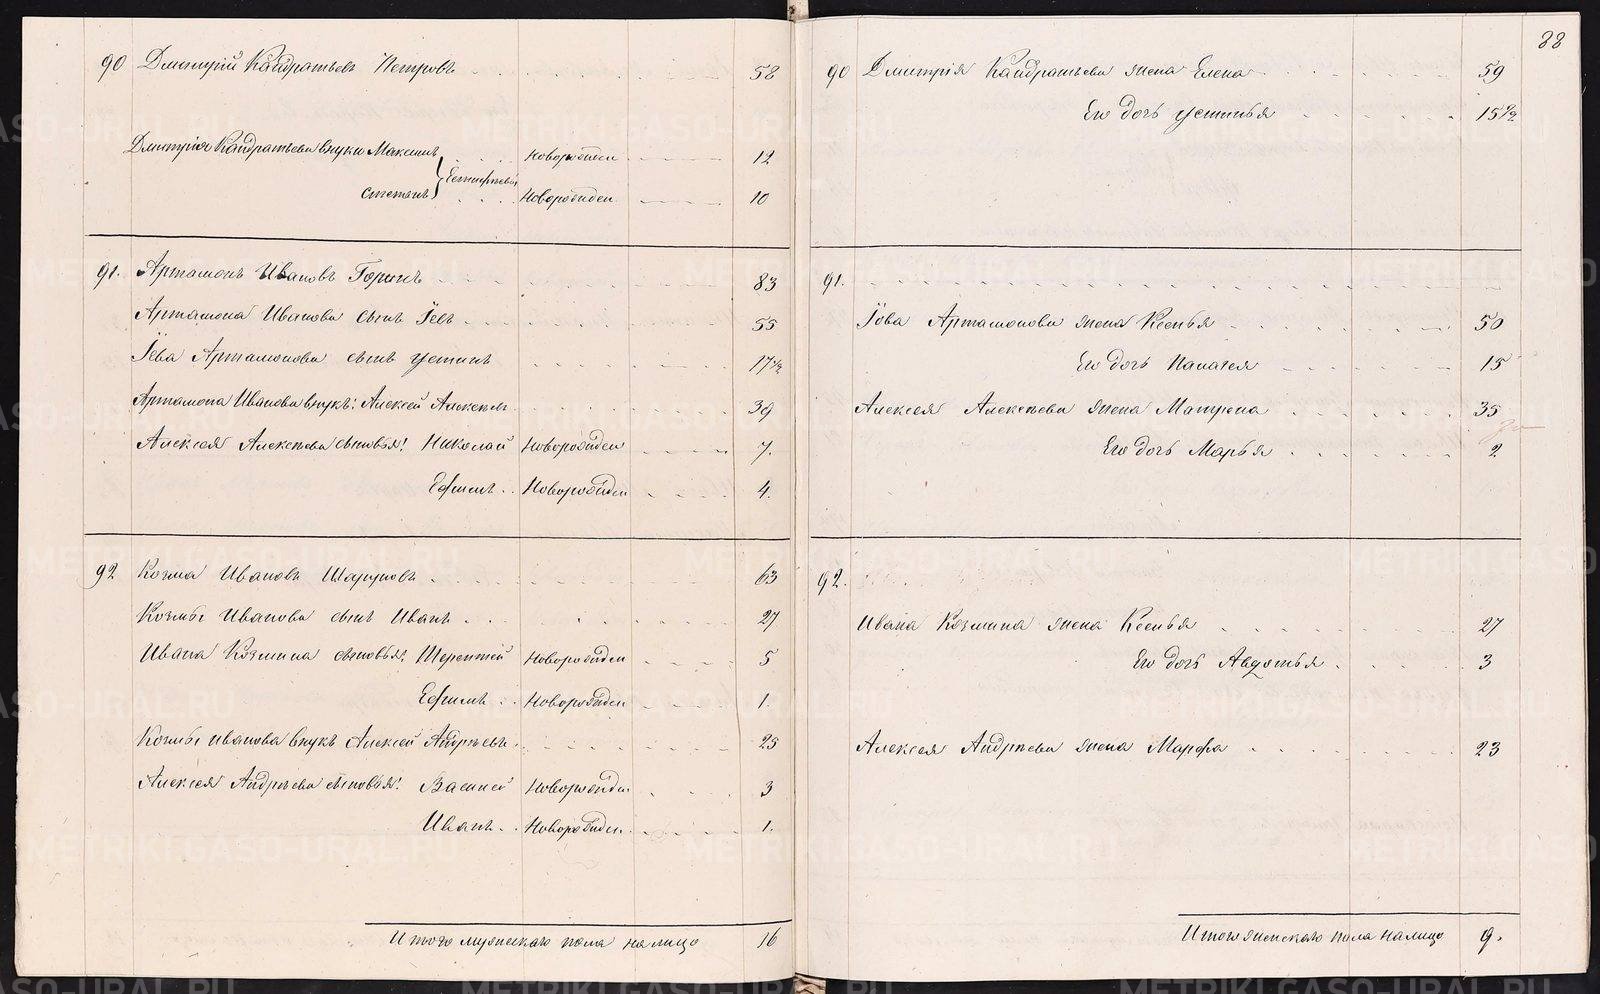 88
90 Дмитрій Кандратьевъ Петровъ 58
Дмитрія Кандратьева внуки Максимъ новорожден 12
Степанъ Новорожден 10
91. Артамонъ Ивановъ Горинъ 83
Артамона Иванова сынъ Іевъ 55
Іева Артамонова сынъ Устинъ 17½
Артамона Иванова внукъ: Алексей Алексѣевъ 39
Алексея Алексѣева сыновья: Николай Новорожден 7.
Ефимъ Новорожден 4.
92 Козма Ивановъ 63
Козмы Иванова сынъ Иванъ 27
Ивана Козмина сыновья: Терентей Новорожден 5
Ефимъ Новорожден 1.
Козмы Иванова внукъ Алексей Андрѣевъ 25
Алексея Андрѣева сыновья: Василей Новорожден 3
Иванъ Новорожден 1.
Итого мужескаго пола на лицо 16
90 Дмитрія Кандратьева жена Елена 59
Его дочь Устинья 15½
91.
Іова Артамонова жена Ксенья 50
Его дочь Палагея 15
Алексея Алексѣева жена Матрена 35
Его дочь Марья 2
92.
Ивана Козмина жена Ксенья 27
Его дочь Авдотья 3
Алексея Андрѣева жена Марфа 23
Итого женскаго пола налицо 9.
METRIKI.GASO-URAL.RU